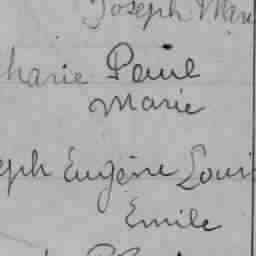 Joseph Marie
charie Paul
Marie
eph Eugène Louis
Emile